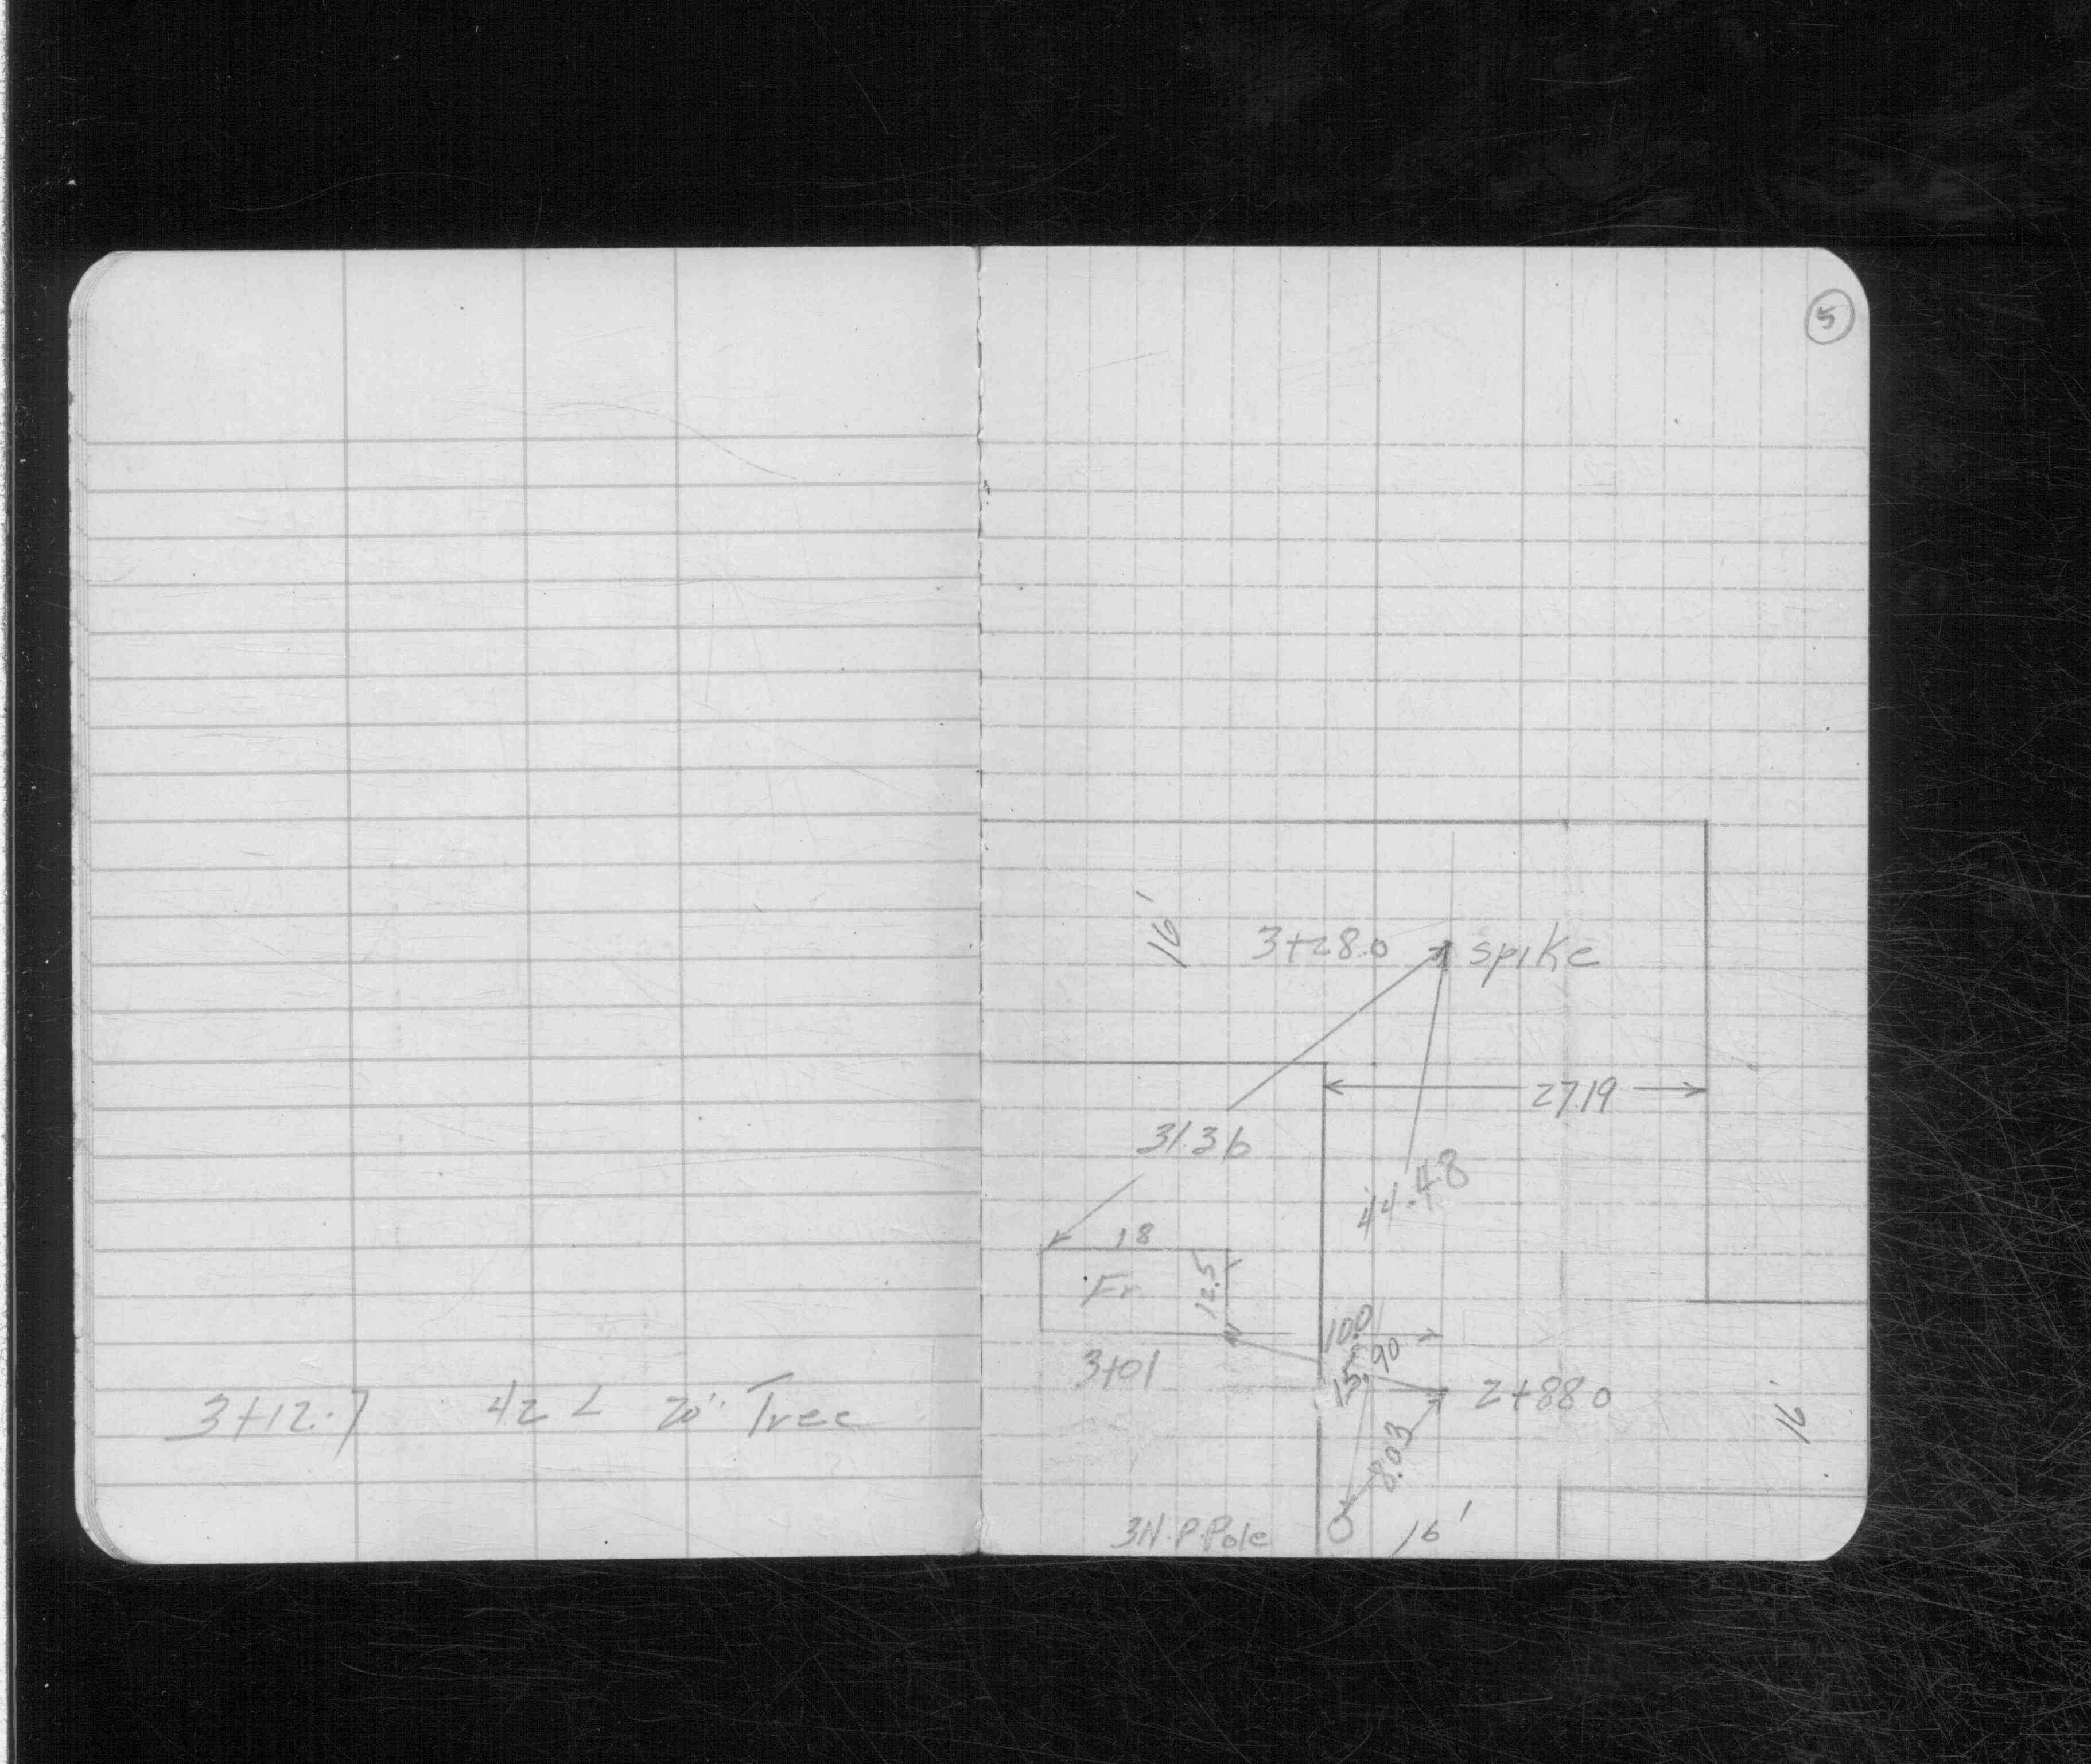 3+12.7 42 L 20" Tree
5
16'
3+28.0 spike
27.19
31.36
44.48
18
Fr 12.5
10.0
90
3+01
2+88.0
8.03
16'
3N.P.Pole 16'